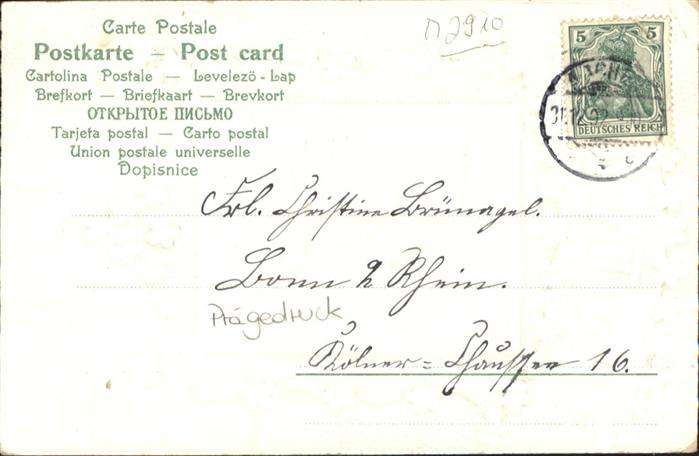 Carte Postale
Postkarte — Post card
Cartolina Postale — Levelezö-Lap
Brefkort — Briefkaart — Brevkort
ОТКРЫТОЕ ПИСЬМО
Tarjeta postal — Carto postal
Union postale universelle
Dopisnice
M2910
5 5
DEUTSCHES REICH
31.12.
Frl. Christine Brünagel.
Bonn a Rhein.
Prägedruck
Kölner=Chaussee 16.